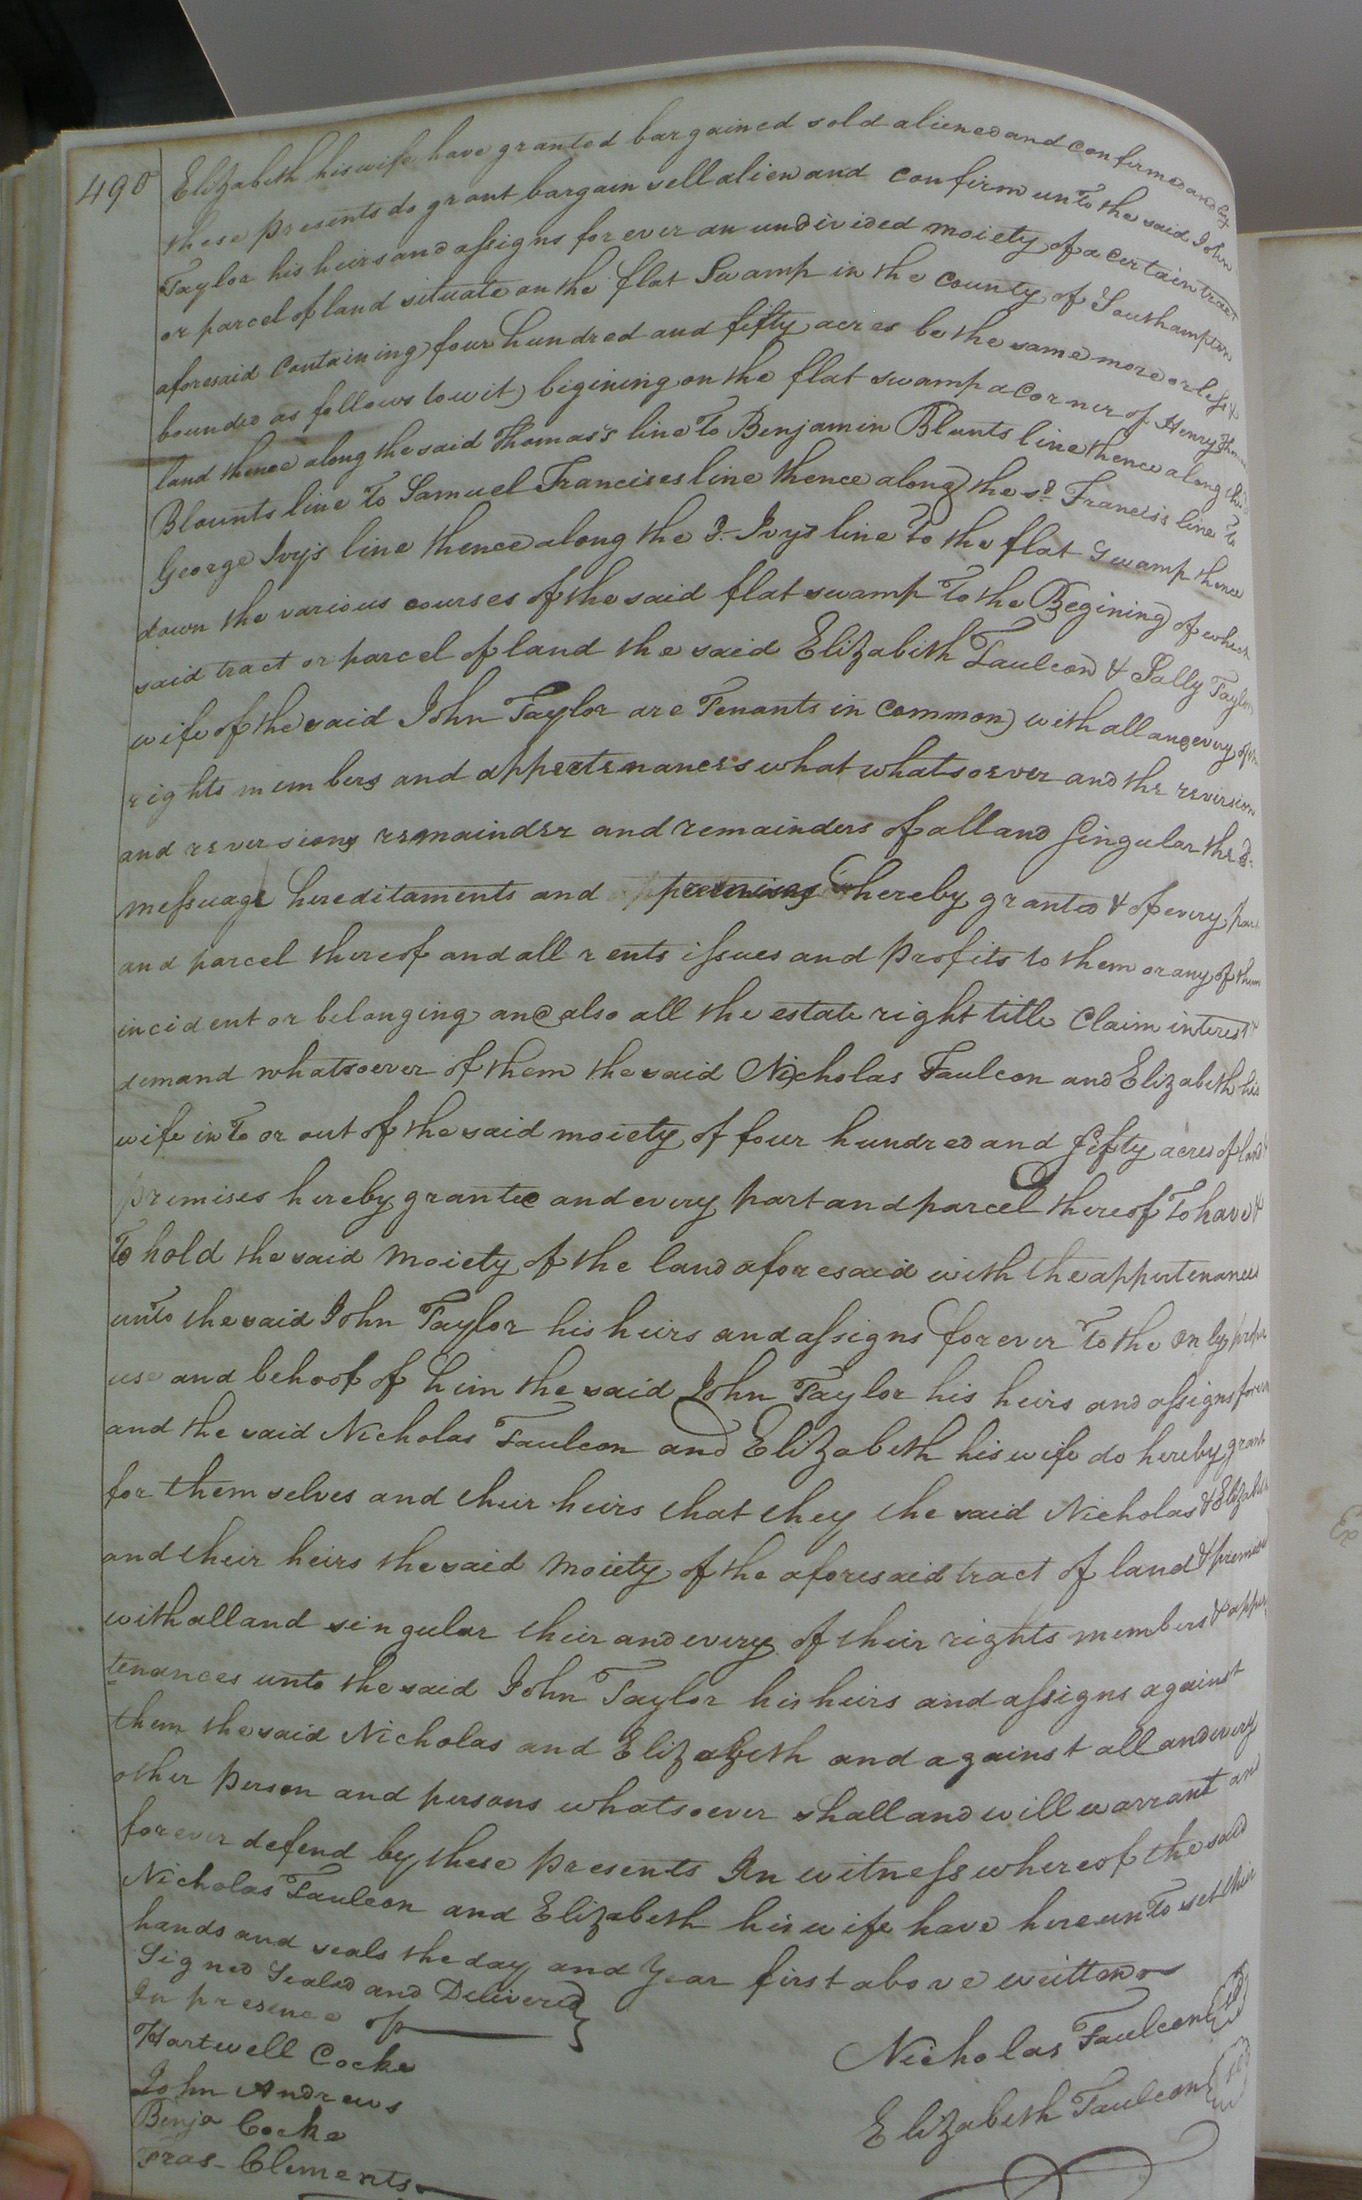 490
Elizabeth his wife, have granted bargained sold aliened and confirmed and by
these presents do grant bargain sell alien and confirm unto the said John
Taylor his heirs and assigns for ever an undivided moiety of a certain tract
or parcel of land situate on the flat Swamp in the county of Southampton
aforesaid containing four hundred and fifty acres be the same more or less &
bounded as follows towit) begining on the flat swamp a corner of Henry Thomas
land thence along the said Thomas's line To Benjamin Blunts line thence along the sd
Blounts line To Samuel Francises line thence along the sd Francis's line To
George Ivy's line thence along the sd Ivys line To the flat Swamp thence
down the various courses of the said flat swamp To the Begining of which
said tract or parcel of land the said Elizabeth Faulcon & Sally Taylor
wife of the said John Taylor are Tenants in common) with all and every of the
rights members and appertenances what whatsoever and the reversion
and reversions remainder and remainders of all and Singular the sd
messuage hereditaments and premises hereby granted & of every part
and parcel thereof and all rents issues and profits to them or any of them
incident or belonging and also all the estate right title Claim interest &
demand whatsoever of them the said Nicholas Faulcon and Elizabeth his
wife in To or out of the said moiety of four hundred and fifty acres of land &
premises hereby granted and every part and parcel thereof To have &
To hold the said moiety of the land aforesaid with the appertenances
unto the said John Taylor his heirs and assigns forever To the only proper
use and behoof of him the said John Taylor his heirs and assigns forever
and the said Nicholas Faulcon and Elizabeth his wife do hereby grant
for themselves and their heirs that they the said Nicholas & Elizabeth
and their heirs the said moiety of the aforesaid tract of land & premises
with all and singular their and every of their rights members & apper
tenances unto the said John Taylor his heirs and assigns against
them the said Nicholas and Elizabeth and against all and every
other person and persons whatsoever shall and will warrant and
forever defend by these presents In witness whereof the said
Nicholas Faulcon and Elizabeth his wife have hereunto set their
hands and seals the day and year first above written
Signed Sealed and Delivered
In presence of
Hartwell Cocke
John Andrews
Benja Cocke
Fras. Clements
Nicholas Faulcon
Elizabeth Faulcon